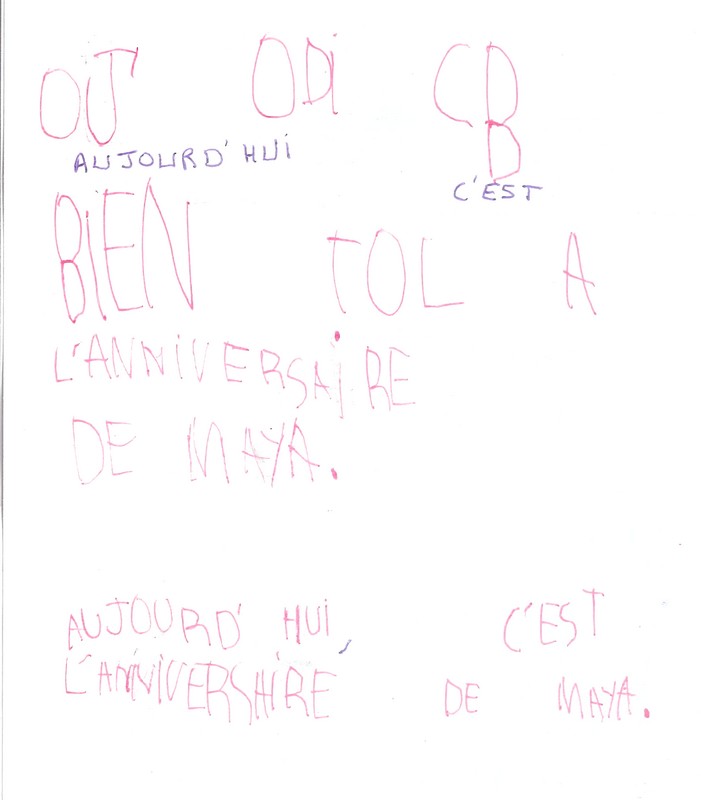 OJT ODI CB
AUJOURD'HUI B
C'EST
BIEN TOL A
L'ANNIVERSAIRE
DE MAYA.
AUJOURD'HUI, C'EST
L'ANNIVERSAIRE DE MAYA.